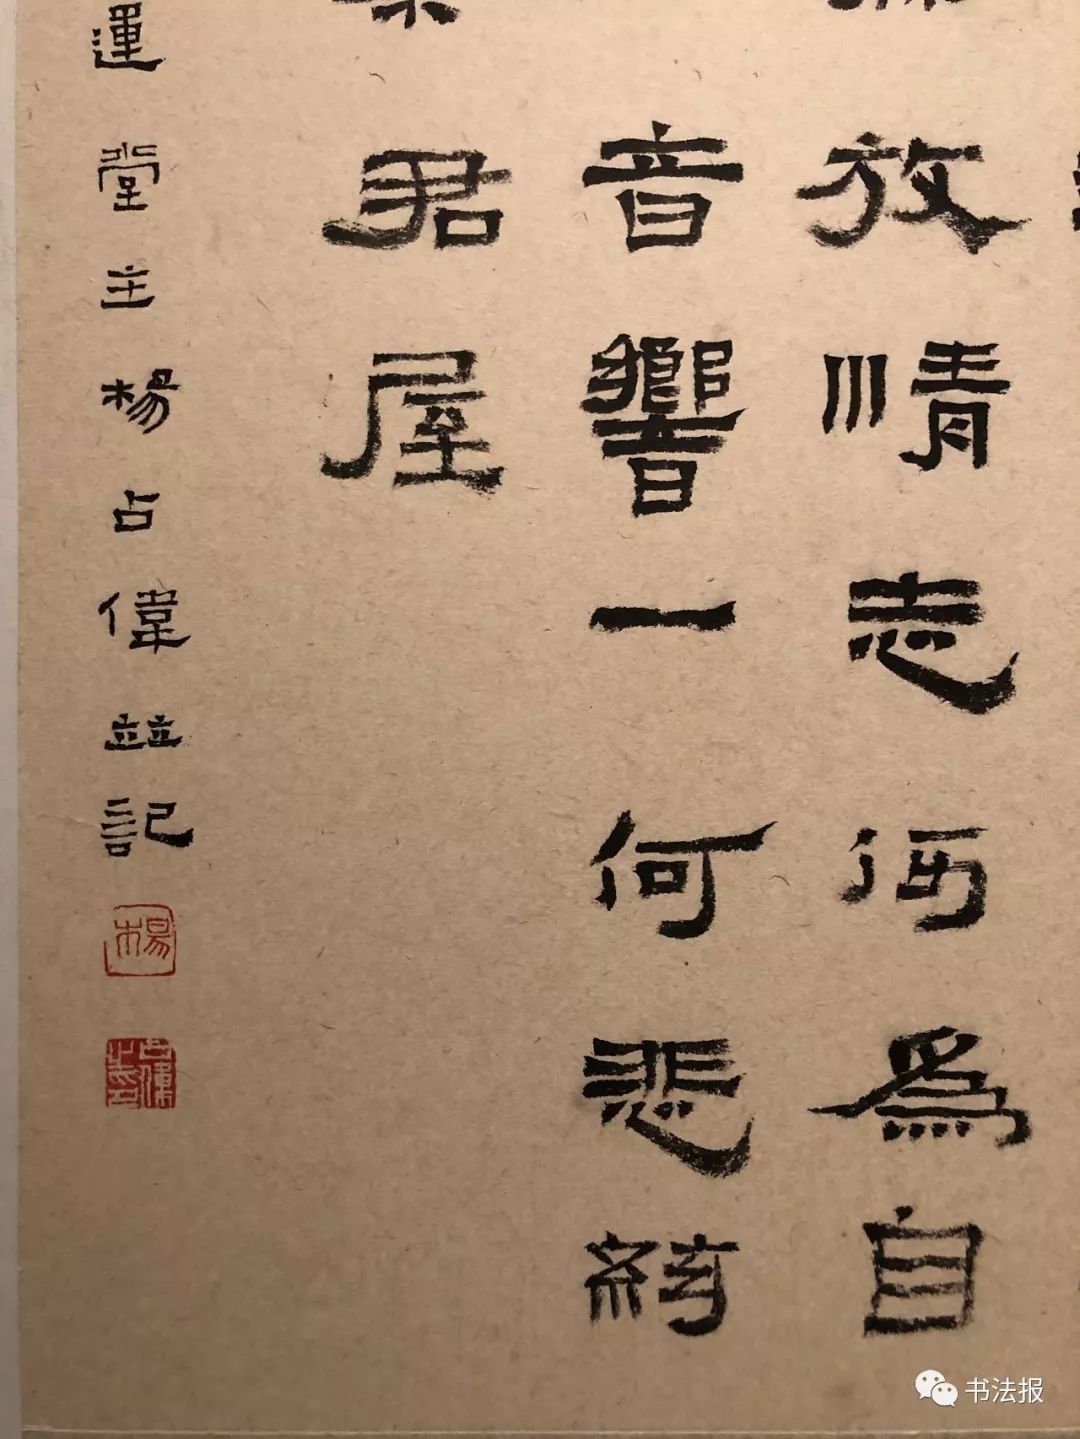 放情志何為自
音響一何悲絃
君屋
運堂主楊占偉竝記
楊
书法报